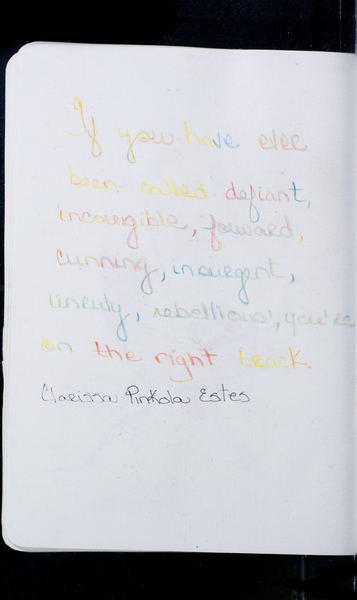 If you have ever
been called defiant,
incorrigible, forward,
cunning, insurgent,
unruly, rebellious, you're
on the right track.
Clarissa Pinkola Estes